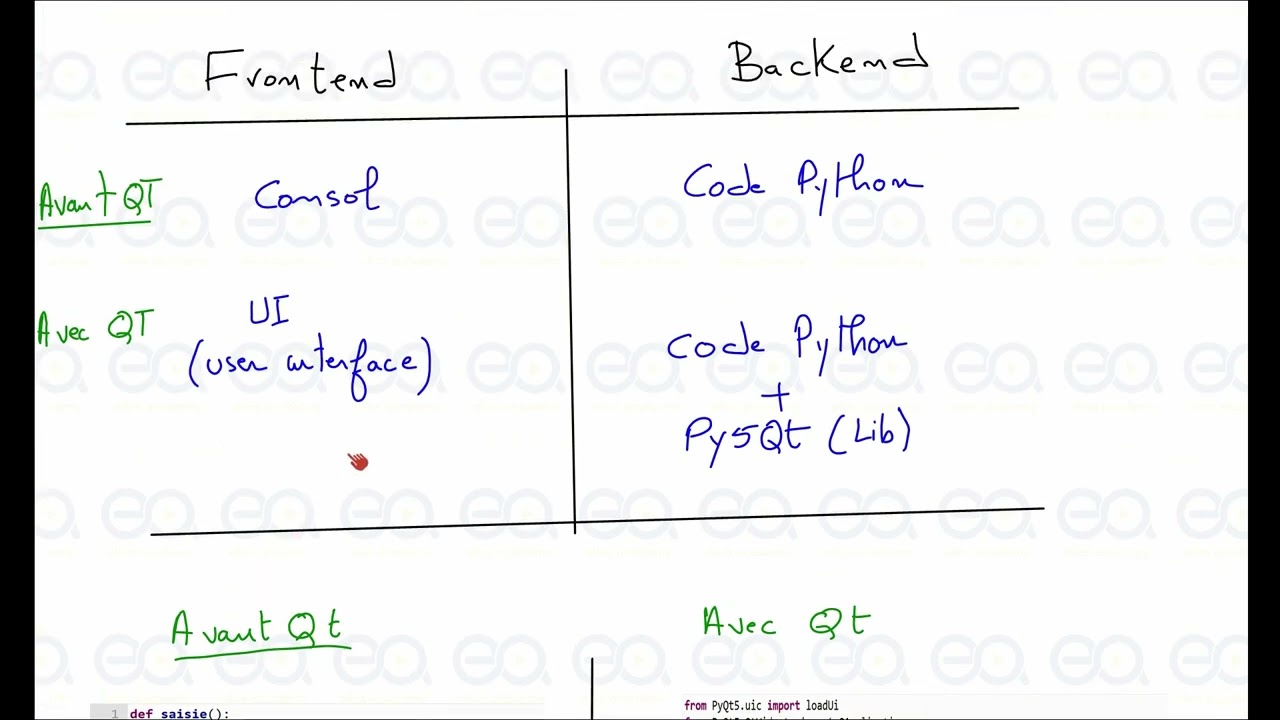 Frontend Backend
Avant QT Consol Code Python
Avec QT UI Code Python
(user interface) +
Py5Qt (Lib)
Avant Qt Avec Qt
1 def saisie(): from PyQt5.uic import loadUi